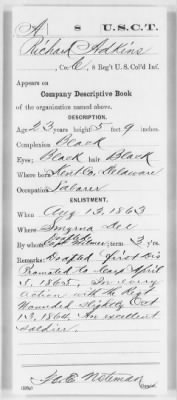 A 8 U.S.C.T.
Richard Adkins
, Co. C, 8 Reg't U. S. Col'd Inf.
Appears on
Company Descriptive Book
of the organization named above.
DESCRIPTION.
Age 23 years; height 5 feet 9 inches.
Complexion Black
Eyes Black; hair Black
Where born Kent Co., Delaware
Occupation Laborer
ENLISTMENT.
When Aug 13, 1863
Where Smyrna Del
By whom ; term 3 y'rs.
Remarks: Drafted first Dis
Promoted to Corp April
1865. In every
action with the Regt
Wounded slightly Oct
13, 1864. An excellent
soldier.
Copyist.